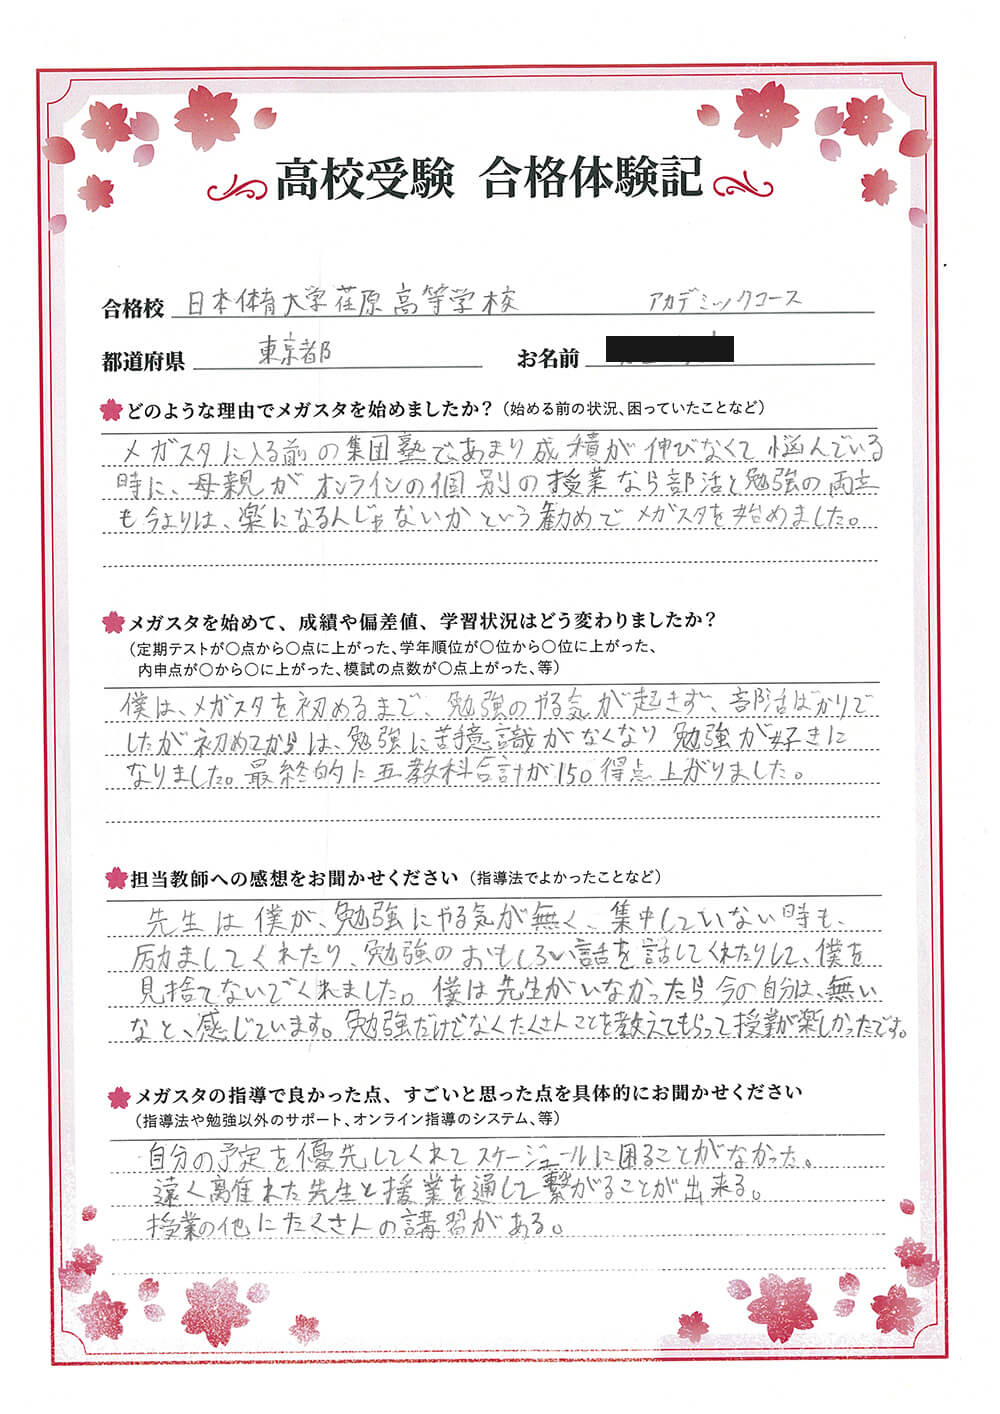 高校受験 合格体験記
合格校 日本体育大学荏原高等学校 アカデミックコース
都道府県 東京都 お名前
どのような理由でメガスタを始めましたか?(始める前の状況、困っていたことなど)
メガスタに入る前の集団塾で、あまり成積が伸びなくて悩んでいる
時に、母親がオンラインの個別の授業なら部活と勉強の両立
も今よりは、楽になるんじゃないかという勧めでメガスタを始めました。
メガスタを始めて、成績や偏差値、学習状況はどう変わりましたか?
(定期テストが〇点から〇点に上がった、学年順位が〇位から〇位に上がった、
内申点が〇から〇に上がった、模試の点数が〇点上がった、等)
僕は、メガスタを初めるまで、勉強のやる気が起きず、部活ばかりで
したが初めてからは、勉強に苦意識がなくなり勉強が好きに
なりました。最終的に五教科合計が150得点上がりました。
担当教師への感想をお聞かせください(指導法でよかったことなど)
先生は僕が、勉強にやる気が無く、集中していない時も、
励ましてくれたり、勉強のおもしろい話を話してくれたりして、僕を
見捨てないでくれました。僕は先生がいなかったら今の自分は、無い
なと、感じています。勉強だけじなくたくさんことを教えてもらって授業が楽しかったです。
メガスタの指導で良かった点、すごいと思った点を具体的にお聞かせください
(指導法や勉強以外のサポート、オンライン指導のシステム、等)
自分の予定を優先してくれてスケージュールに困ることがなかった。
遠く離れた先生と授業を通して繋がることが出来る。
授業の他にたくさんの講習がある。